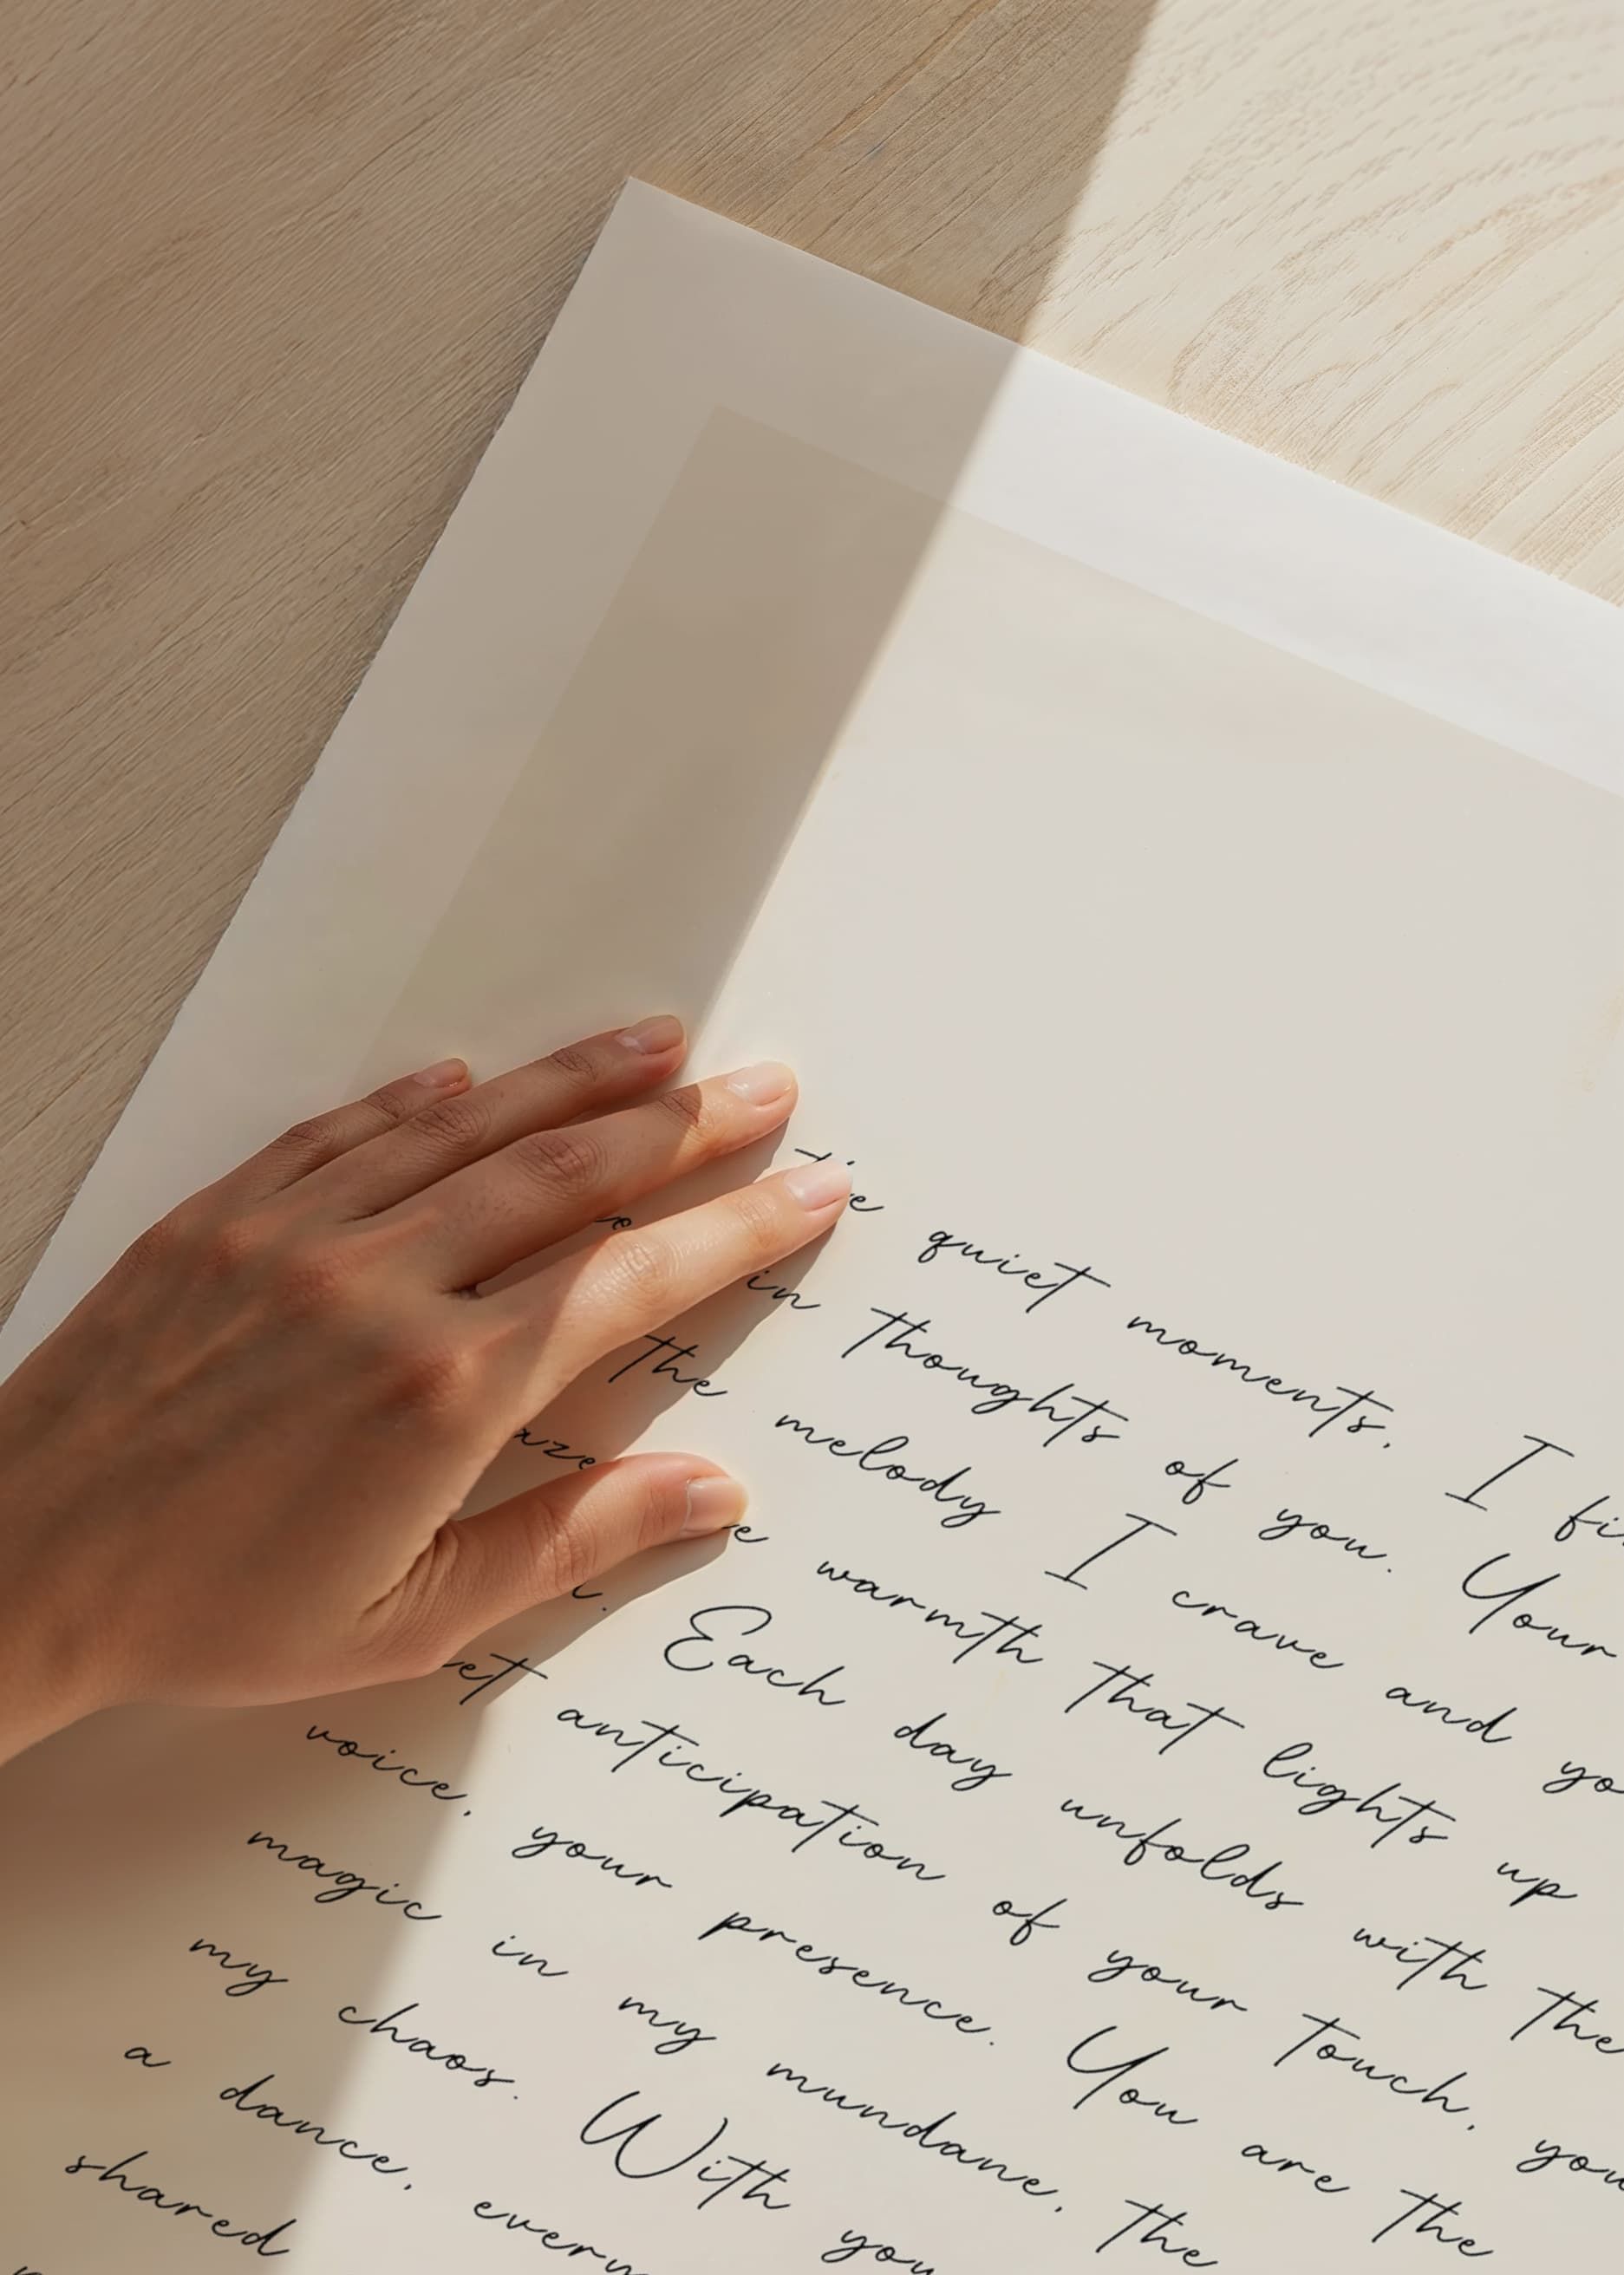 quiet moments, I
in thoughts of you. Your
the melody I crave and
warmth that lights up
Each day unfolds with the
anticipation of your touch,
voice, your presence. You are the
magic in my mundane, the
my chaos. With you
a dance,
shared